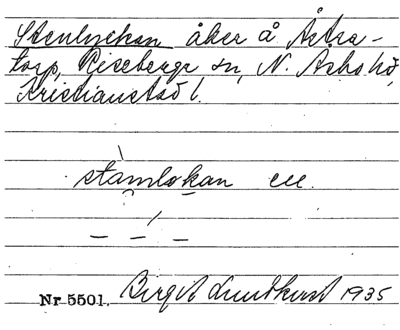 Stenlyckan åker å Åstra-
torp, Riseberga sn, N. Åsbo hd,
Kristianstad l.
stamlokan
Nr 5501. Birgit Lundkvist 1935